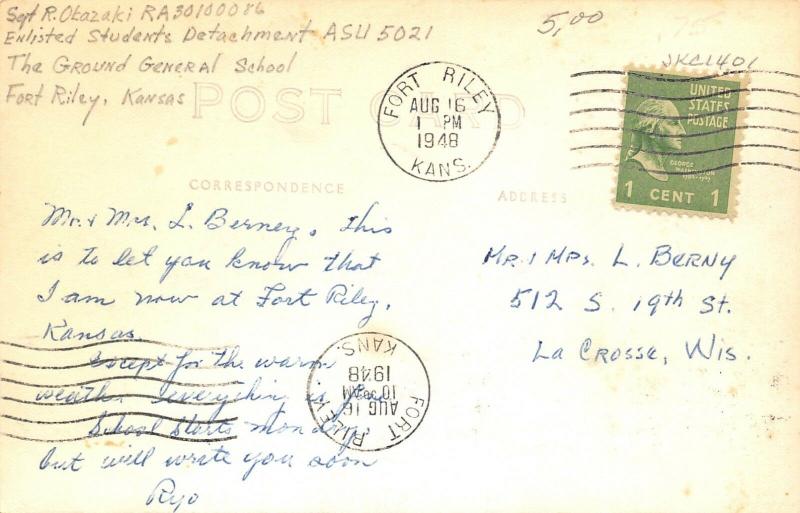 Sgt R. Okazaki RA30100086
Enlisted Students Detachment ASU 5021
The Ground General School
Fort Riley, Kansas
5,00
75
JKC1401
POST CARD
FORT RILEY
AUG 16
1 PM
1948
KANS.
UNITED
STATES
POSTAGE
GEORGE
WASHINGTON
1 CENT 1
CORRESPONDENCE
ADDRESS
Mr. & Mrs. L. Berney, This
is to let you know that
I am now at Fort Riley,
Kansas
Except for the warm
weather everything is
School starts Monday
but will write you soon
Ryo
FORT RILEY
AUG 16
AM
1948
KANS.
Mr. & Mrs. L. Berny
512 S. 19th St.
La Crosse, Wis.